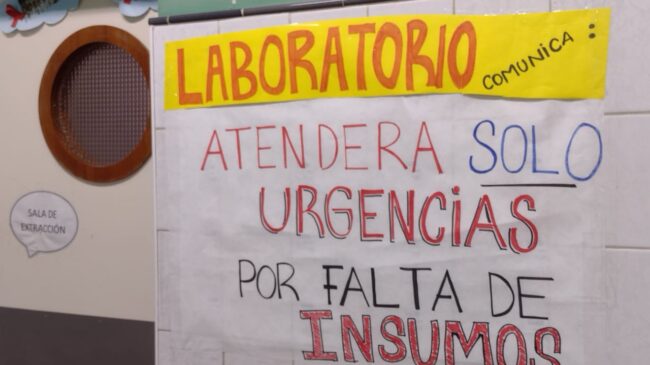 LABORATORIO
COMUNICA :
ATENDERA SOLO
URGENCIAS
POR FALTA DE
INSUMOS
SALA DE
EXTRACCIÓN